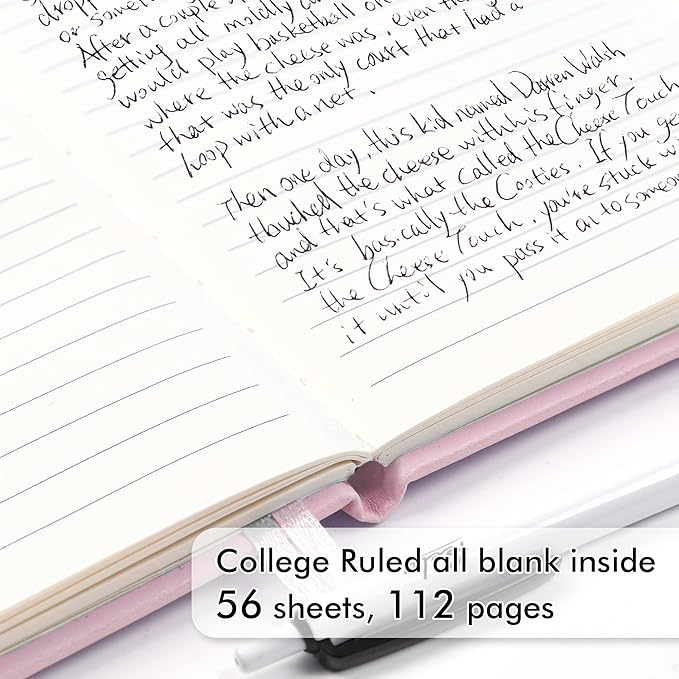 dropp
or somet
After a couple
getting all moldy a
would play basketball on
where the cheese was, even tho
that was the only court that had a
hoop with a net.
Then one day, this kid named Darren Walsh
touched the cheese with his finger.
and that's what called the Cheese Touch
It's basically the Cooties. If you ge
the Cheese Touch, you're stuck wi
it until you pass it on to someon
College Ruled all blank inside
56 sheets, 112 pages